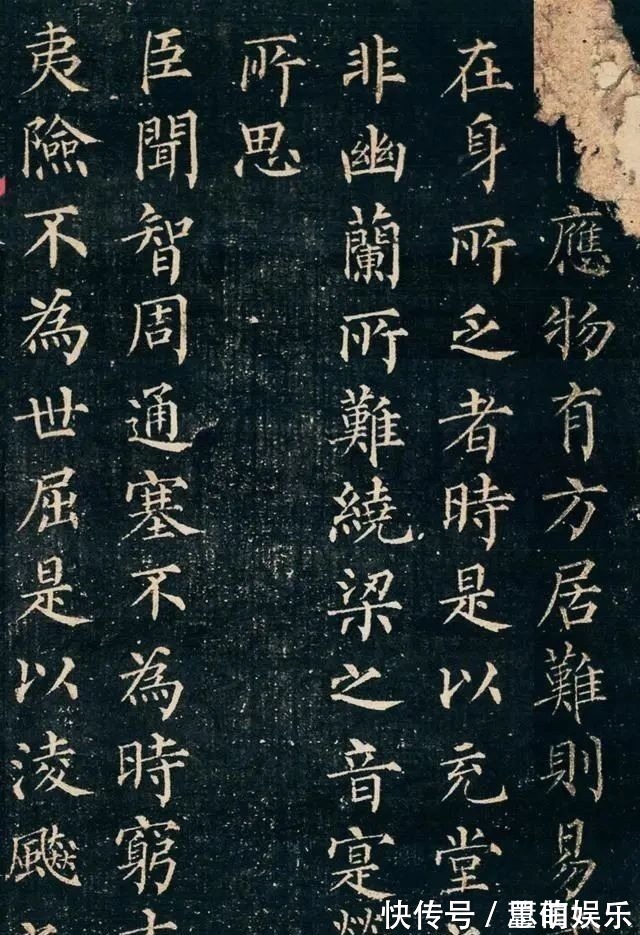 應物有方居難則易
在身所乏者時是以充堂
非幽蘭所難繞梁之音寔
所思
臣聞智周通塞不為時窮
夷險不為世屈是以淩飇
快传号 / 萌娱乐